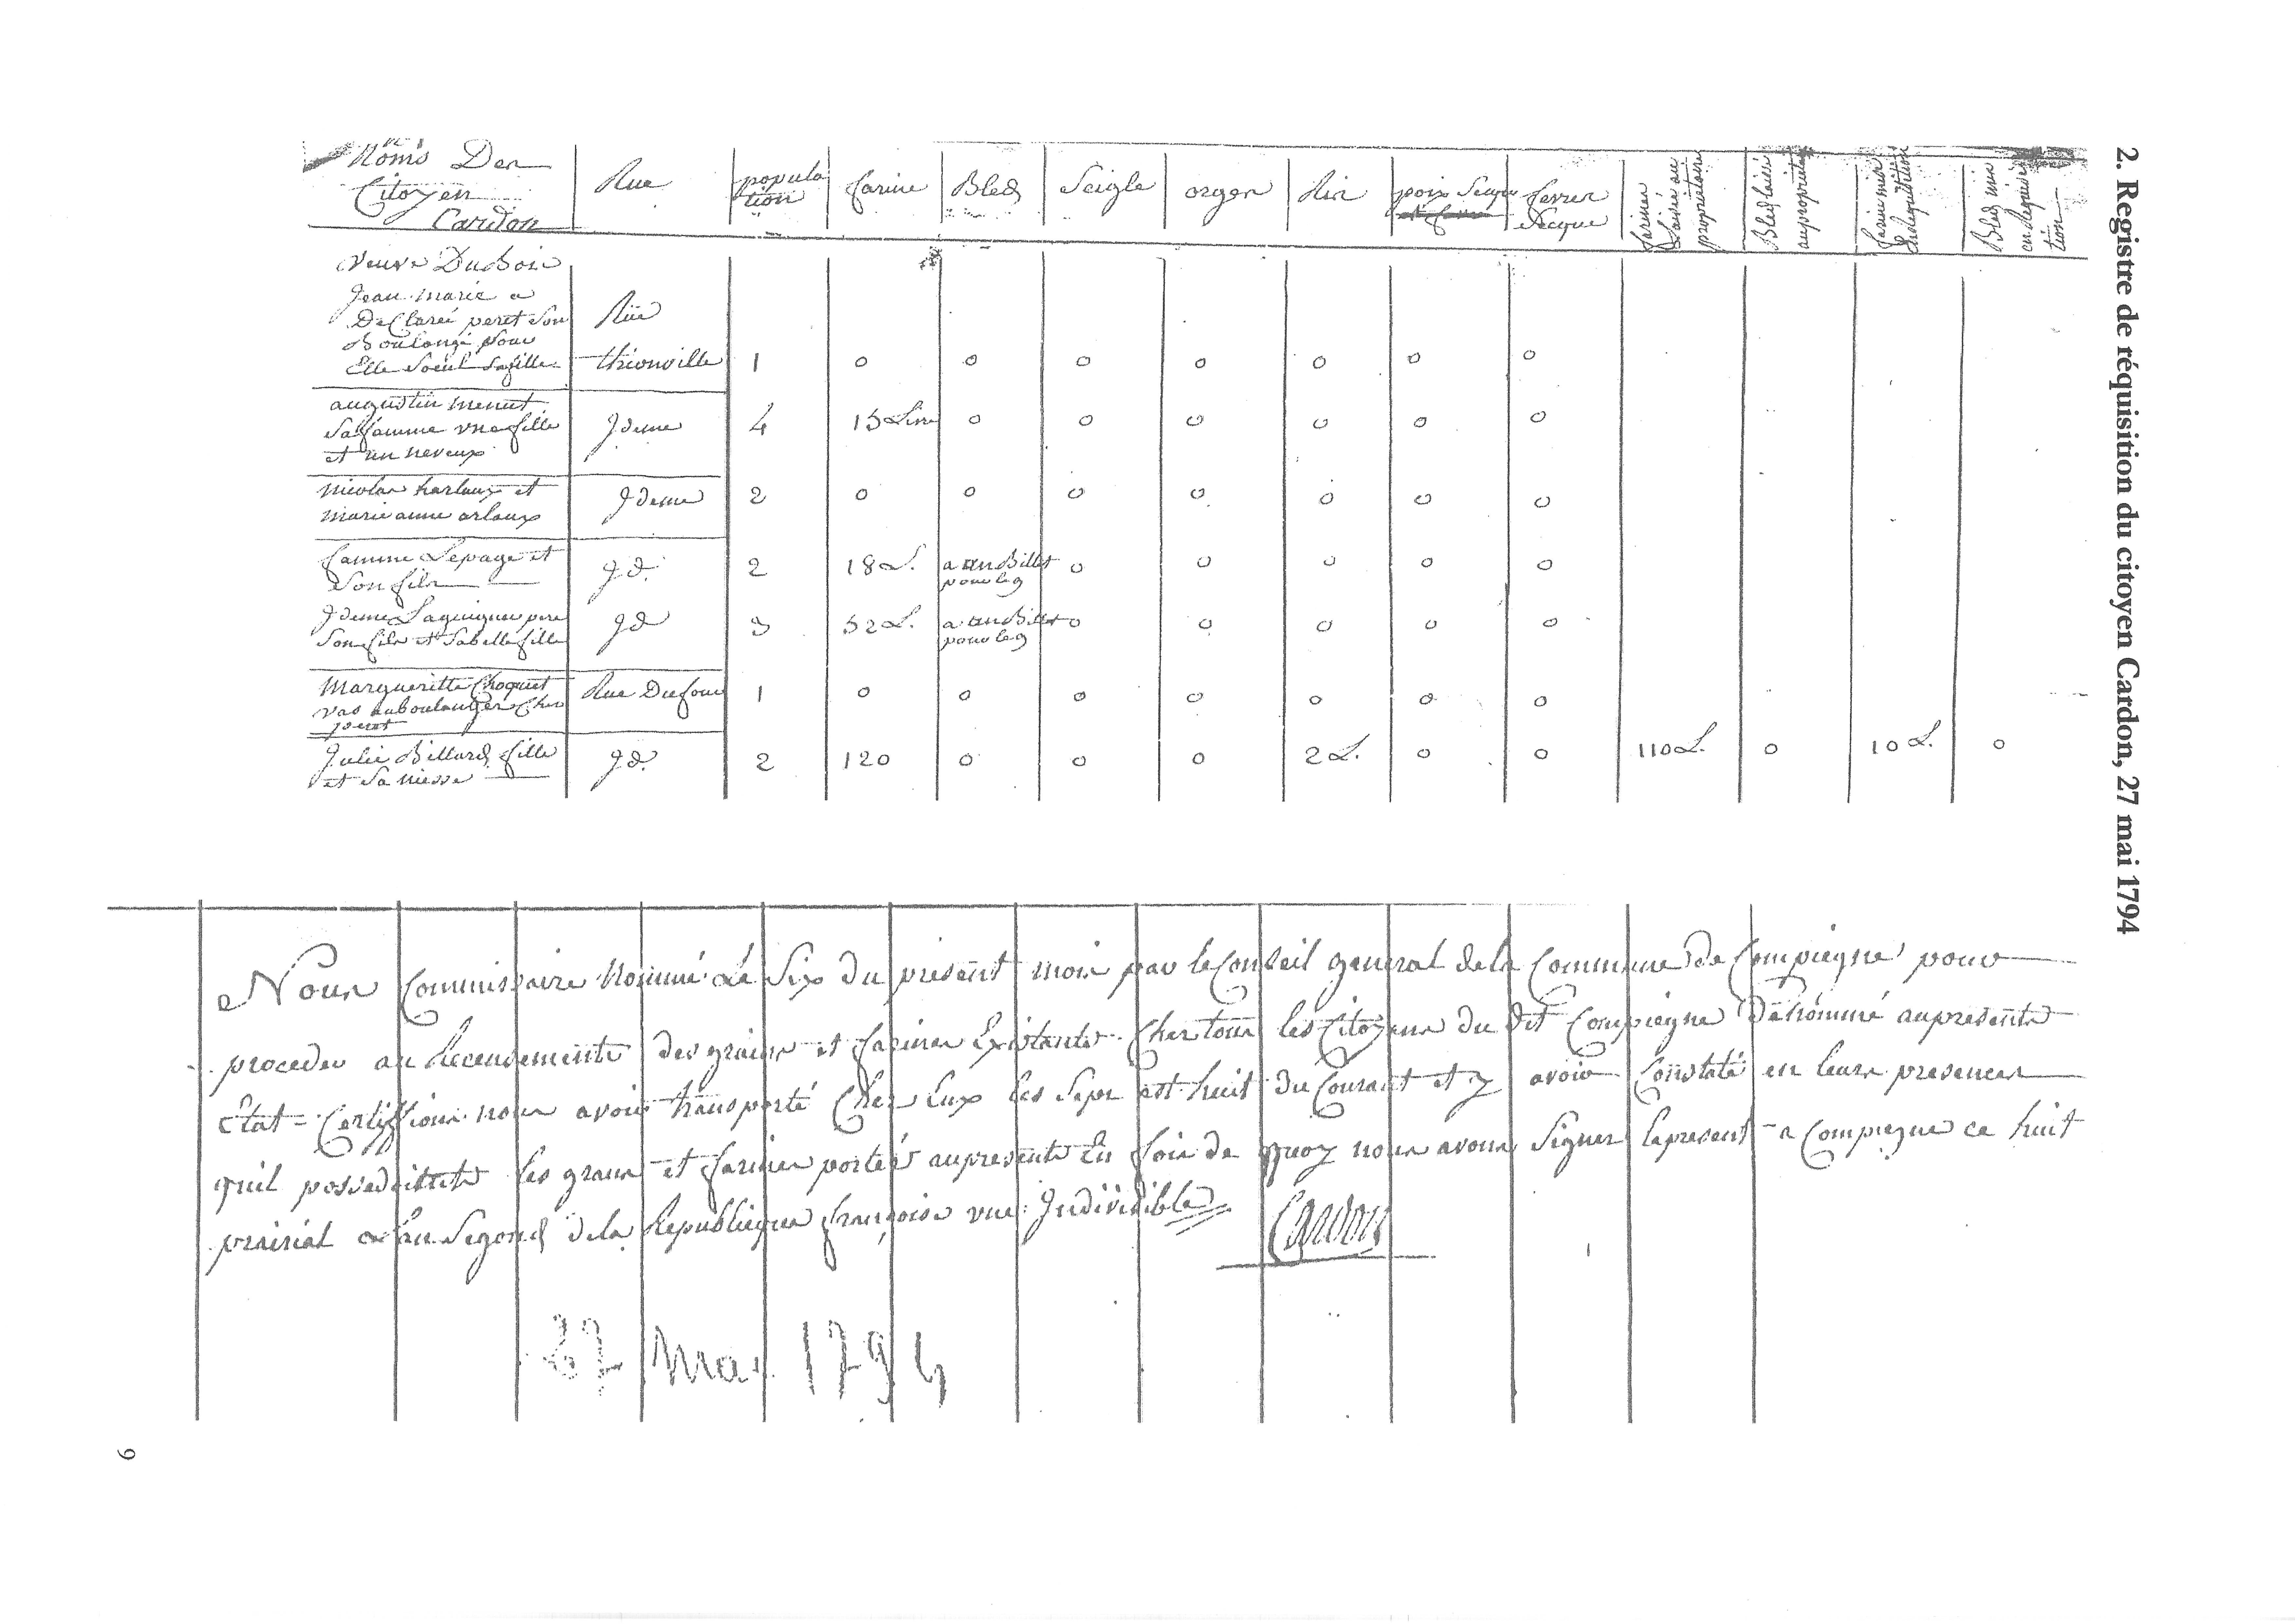 2. Registre de réquisition du citoyen Cardon, 27 mai 1794
Noms Des Citoyen Cardon | Rue | population | farine | Bled | Seigle | orges | Ris | poix Secque | fevres Secque | farines laissée au propriétaire | Bled laissé au propriétaire | farine mise en Requisition | Bled mis en Requisition
veuve Dubois
Jean marie a
Declaré peret Son
Boulongé pour
Elle Seul Safille | Rüe thionville | 1 | 0 | 0 | 0 | 0 | 0 | 0 | 0
augustin menut
Sa famme une fille
et un neveux | Jdeme | 4 | 15 Livre | 0 | 0 | 0 | 0 | 0 | 0
nicolas harlaux et
marie anne arlaux | Jdeme | 2 | 0 | 0 | 0 | 0 | 0 | 0 | 0
famme Lepage et
Son fils | Jd. | 2 | 18 L. | a un Billet pour le 9 | 0 | 0 | 0 | 0 | 0
Jdeme pere
Son fils et Sa belle fille | Jd | 3 | 52 L. | a un Billet pour le 9 | 0 | 0 | 0 | 0 | 0
Margueritte Choquet
vas au boulanger Ches
peret | Rue Dufour | 1 | 0 | 0 | 0 | 0 | 0 | 0 | 0
Julie Billard fille
et Sa niesse | Jd. | 2 | 120 | 0 | 0 | 0 | 2 L. | 0 | 0 | 110 L. | 0 | 10 L. | 0
Nous Commissaire Nommé Le Six du present mois par le Conseil general de la Commune de Compiegne pour
proceder au Recensemente des grains et farines Existante Ches tous les Citoyens du dit Compiegne Denommé au presente
Etat = Certiffions nous avoir transporté Ches Eux les Sept est huit du Courant et y avoir Constaté en leurs presences
quil les grains et farines portées au presente En foir de quoy nous avons Signer le present a Compiegne ce huit
prairial L'an Segond de la Republique françoise une Indivisible
Cardon
27 Mai 1794
6